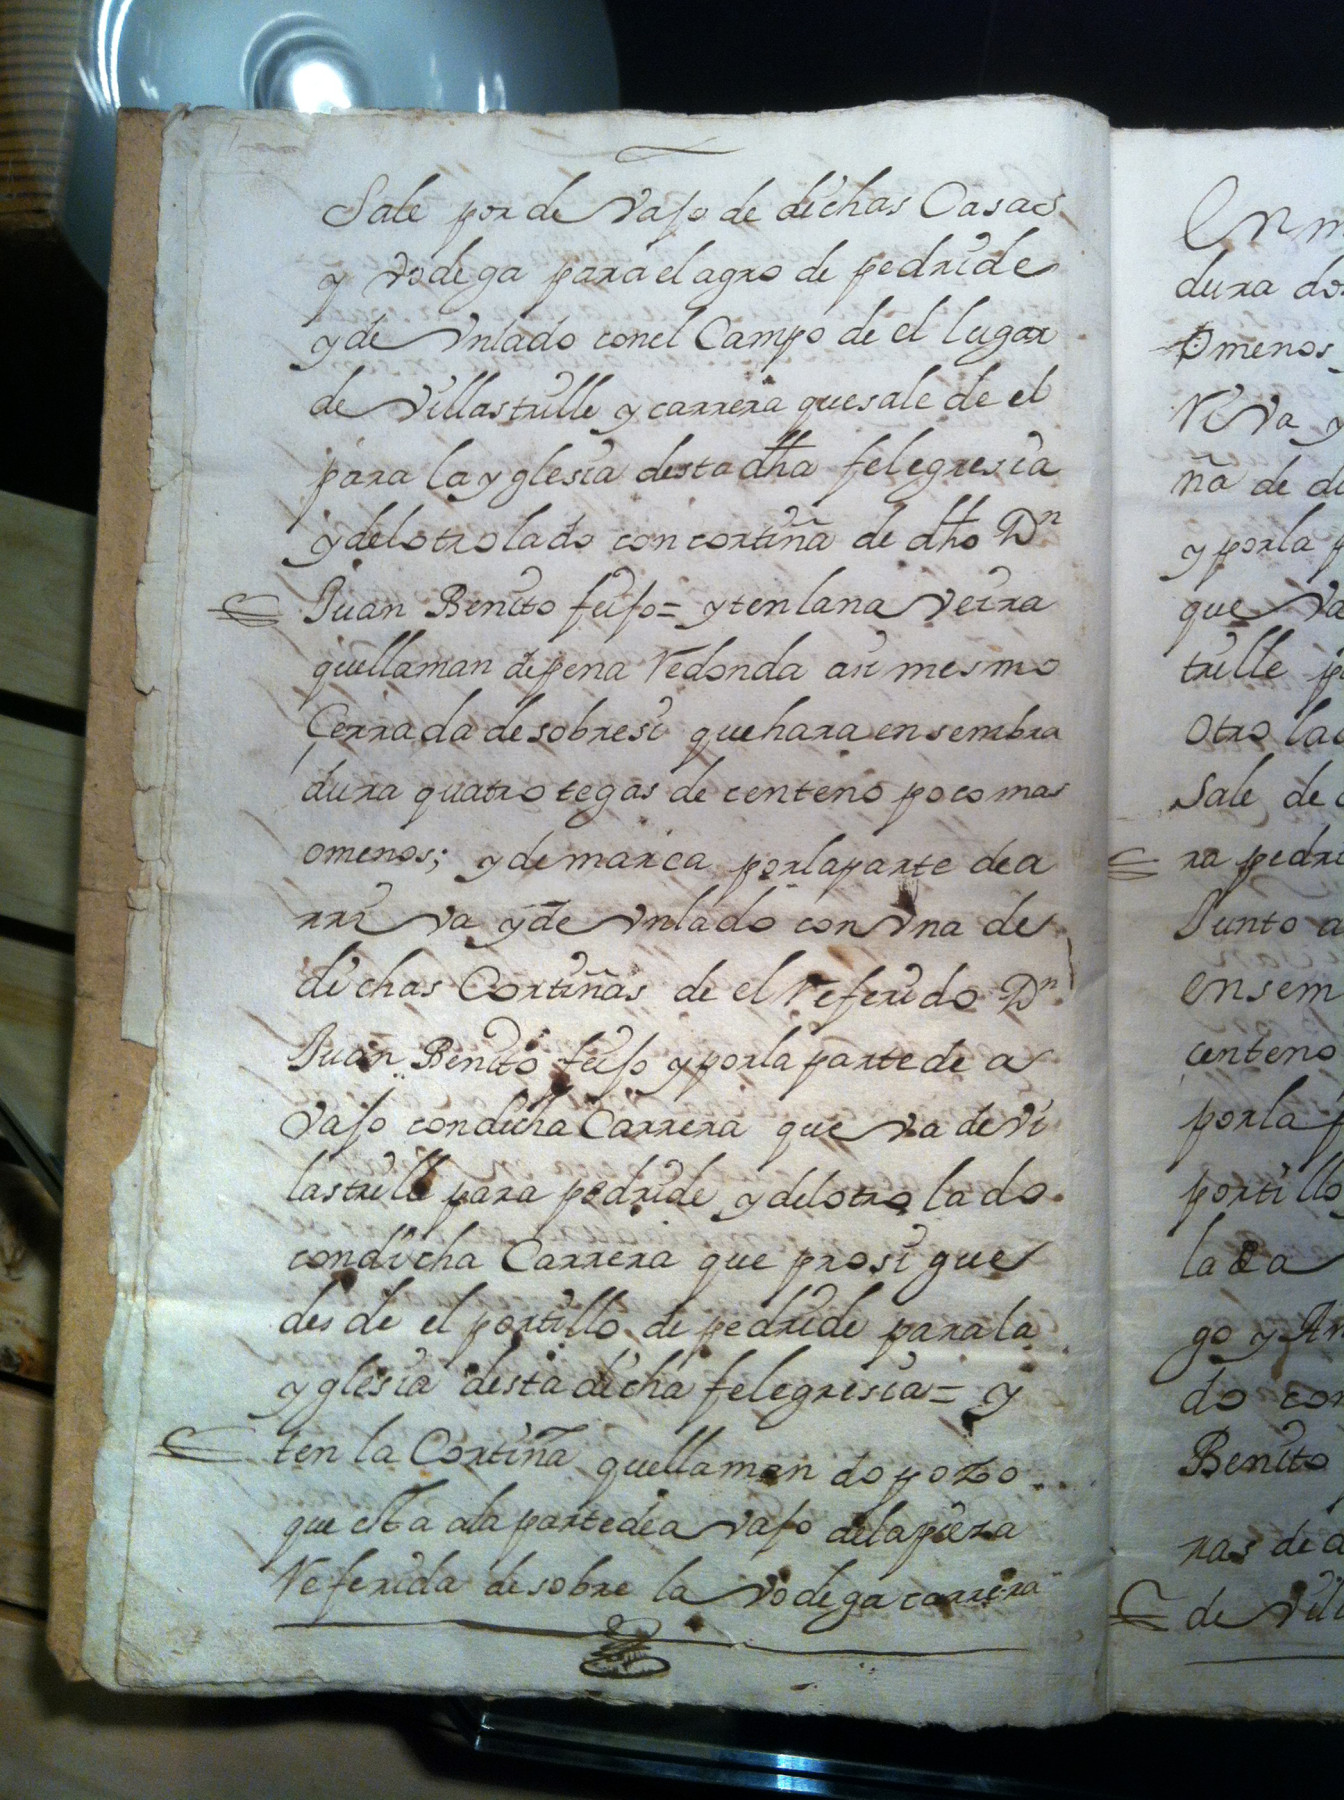 Sale por de vajo de dichas Casas
y vodega para el agro de pedride
y de Unlado conel Campo de el lugar
de Villastrille y carrera quesale de el
para la yglesia desta dha felegresia
y delotrolado con cortiña de dho Dn
Juan Benito feijo = yten lana Veira
quellaman depena Redonda asi mesmo
Cerrada desobresi quehara ensembra
dura quatro tegas de centeno poco mas
omenos; y demarca porlaparte dea
rri va y de Unlado con Una de
dichas Cortiñas de el Referido Dn
Juan Benito feijo y porla parte de a
vajo condicha Carrera que va de Vi
lastrille para pedride y delotro lado
condicha Carrera que prosigue
desde el portillo de pedride parala
yglesia desta dicha felegresia = y
ten la Cortiña quellaman do pozo
que esta ala parte dea vajo delapieza
Referida desobre la vodega carrera
En m
dura do
omenos
Riva y
ña de di
y porla p
que va
trille p
otro lad
Sale de
ra pedri
Junto a
ensem
centeno
porla p
portillo
go y Ar
do con
Benito
ras de d
de Vil